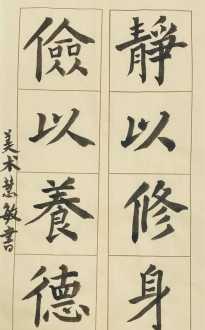 靜以修身
儉以養德
美术慧敏書